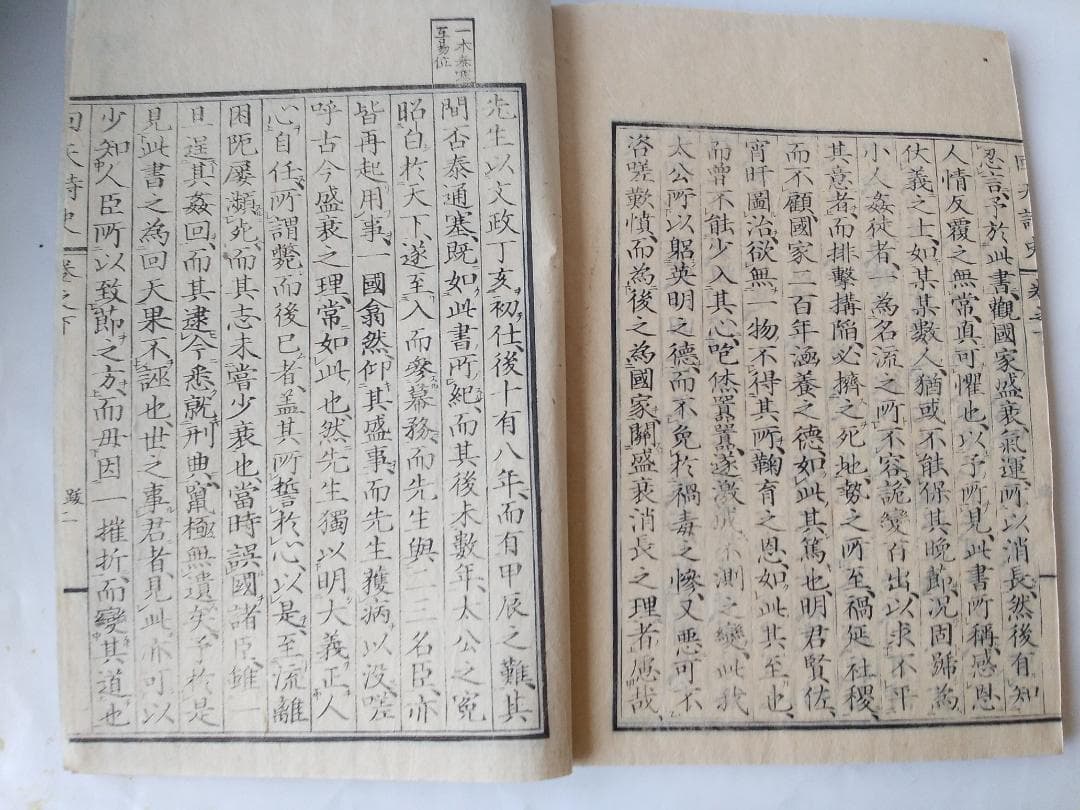 回天詩史 卷之下
忍言予於此書觀國家盛衰氣運所以消長然後有知
人情反覆之無常真可懼也以予所見此書所稱感恩
仗義之士如某某數人猶或不能保其晩節况固歸為
小人姦徒者一為名流之所不容詭變百出以求不平
其意者而排擊搆陷必擠之死地勢之所至禍延社稷
而不顧國家二百年涵養之德如此其篤也明君賢佐
宵旰圖治欲無一物不得其所鞠育之恩如此其至也
而曾不能少入其心咆烋囂囂遂激成不測之變此我
太公所以躬英明之德而不免於禍毒之慘又惡可不
咨嗟歎憤而為後之為國家關盛衰消長之理者慮哉
一本泰塞
互易位
先生以文政丁亥初仕後十有八年而有甲辰之難其
間否泰通塞既如此書所紀而其後未數年太公之冤
昭白於天下遂至入而參幕務而先生與二三名臣亦
皆再起用事一國翕然仰其盛事而先生獲病以没嗟
呼古今盛衰之理常如此也然先生獨以明大義正人
心自任所謂斃而後已者盖其所誓於心以是至流離
困阨屢瀕死而其志未嘗少衰也當時誤國諸臣雖一
旦逞其姦回而其逮今悉就刑典竄極無遺矣予於是
見此書之為回天果不誣也世之事君者見此亦可以
少知人臣所以致節之方而毋因一摧折而變其道也
回天詩史 卷之下 跋一